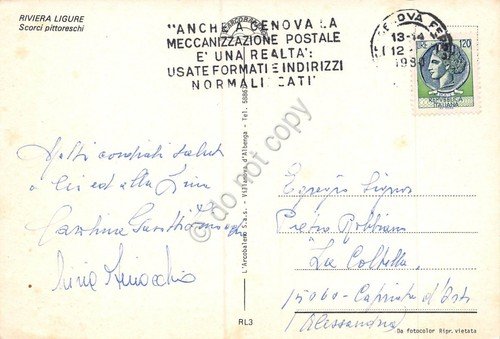 RIVIERA LIGURE
Scorci pittoreschi
"ANCHE A GENOVA LA
MECCANIZZAZIONE POSTALE
E' UNA REALTA':
USATE FORMATI E INDIRIZZI
NORMALIZZATI"
GENOVA FER
13-14
12
1980
120
REPUBBLICA
ITALIANA
Molti cordiali saluti
a lei ed alla
Carolina
L'Arcobaleno S.a.s. - Villanova d'Albenga - Tel.
do not copy
Egregio Signor
Pietro Robbiano
La Colletta
15060 - Capriata d'Orba
Alessandria
RL3
Da fotocolor Ripr. vietata